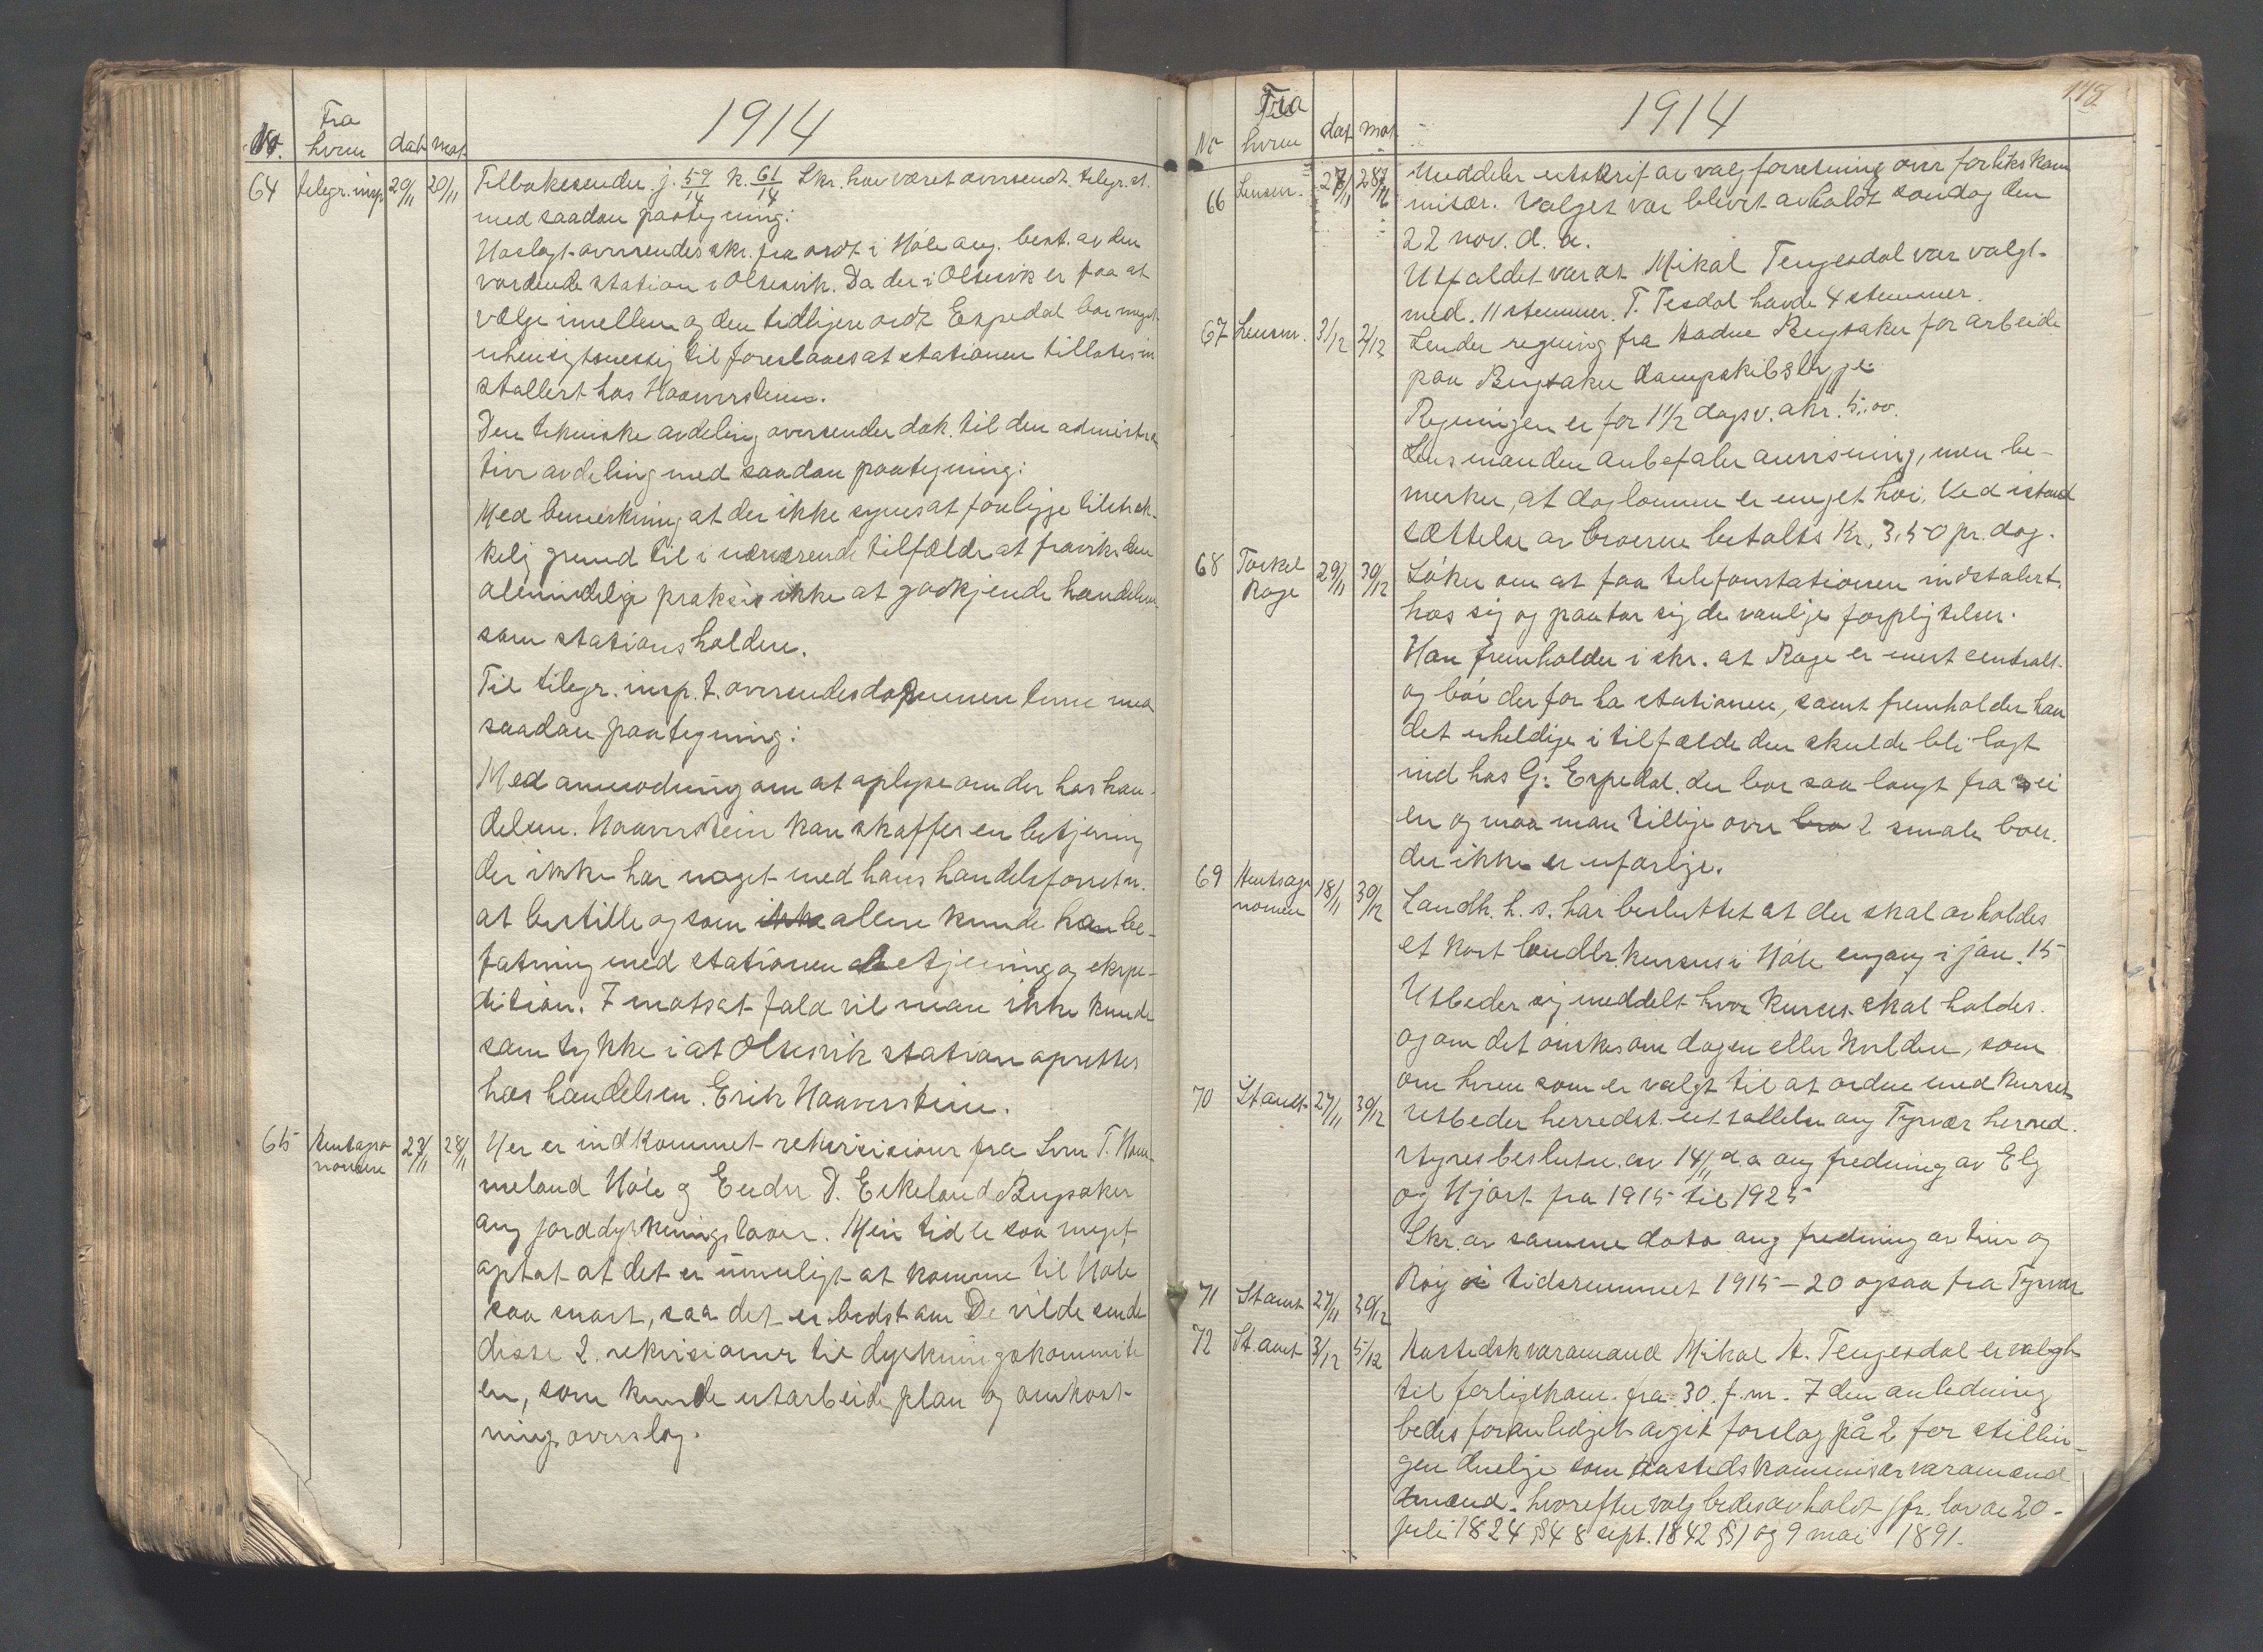 1914
No. Fra hvem dat. mot.
64 telegr. insp 20/11 20/11 Tilbakesender j. 59/14 k. 61/14 Skr. har været oversendt telegr. st.
med saadan paategning:
Høslagt oversendes skr. fra ordf. i Høle ang. best. av den
vordende station i Oltesvik. Da der i Oltesvik er faa at
vælge imellem og den tidligere ordf. Espedal bor meget
uhensigtsmessig til foreslaaes at stationen tillates in
stallert hos Haaverstein.
Den tekniske avdeling oversender dok. til den administra
tive avdeling med saadan paategning:
Med bemerkning at der ikke synes at foreligge tilstræk-
kelig grund til i nærværende tilfælde at fravike den
almindelige praksis ikke at godkjende handelsm.
som stationsholdere.
Til telegr. insp. t. oversendes dokumenterne med
saadan paategning:
Med anmodning om at oplyse om der hos han-
delsm. Haaverstein kan skaffes en betjening
der ikke har noget med hans handelsforretn.
at bestille og som ikke allene kunde ha be-
fatning med stationen betjening og ekspe-
dition. I motsat fald vil man ikke kunde
samtykke i at Oltesvik station oprettes
hos handelsm. Erik Haaverstein.
65 Amtsagro nomen 23/11 28/11 Her er indkommet rekvisisioner fra Lvm T. Hom-
meland Høle og Endre D. Eikeland Bersaker
ang jorddyrkningslaan. Min tid er saa meget
optat at det er umuligt at komme til Høle
saa snart, saa det er bedst om De vilde sende
disse 2. rekvisioner til dyrkningskommite
en, som kunde utarbeide plan og omkost-
nings overslag.
148
1914
No Fra hvem dat. mot.
66 Lensm. 27/11 28/11 Meddeler utskrif av valgforretning over forlikskom
misær. Valget var blivet avholdt søndag den
22 nov. d. a.
Utfaldet var at Mikal Tengesdal var valgt
med 11 stemmer. T. Tesdal havde 4 stemmer.
67 Lensm. 3/12 2/12 Sender regning fra Aadne Bersaker for arbeide
paa Bersaker dampskibsbrygge.
Regningen er for 1 1/2 dagsv. a kr. 5,00.
Lensmanden anbefaler anvisning, men be-
merker, at daglønnen er meget høi. Ved istand
sættelse av broerne betaltes Kr. 3,50 pr. dag.
68 Torkel Rage 29/11 30/12 Søker om at faa telefonstationen indstalert
hos sig og paatar sig de vanlige forpligtelser.
Han fremholder i skr. at Rage er mest centralt
og bør derfor ha stationen, samt fremholder han
det uheldige i tilfælde den skulde bli lagt
ind hos G. Espedal. der bor saa langt fra vei
en og maa man tillige over bro 2 smale broer.
der ikke er ufarlige.
69 Amtsagro nomen 18/11 30/12 Landh. h. s. har besluttet at der skal avholdes
et kort landbr. kursus i Høle engang i jan. 15
Utbeder sig meddelt hvor kurset skal holdes.
og om det ønskes om dagen eller kvelden, som
om hvem som er valgt til at ordne med kurset
70 St. amt 27/11 30/12 Utbeder herredst. uttallelse ang Tysvær herred.
styres beslutn. av 14/11 d. a ang fredning av Elg
og Hjort fra 1915 til 1925
71 St. amt 27/11 30/12 Skr. av samme dato ang fredning av tiur og
Røy i tidsrummet 1915 – 20 ogsaa fra Tysvær
72 St. amt 3/12 5/12 Aastedskvaramand Mikal A. Tengesdal er valgt
til forligskom. fra 30. f. m. I den anledning
bedes foranlediget avgit forslag på 2 for stillin-
gen duelige som Aastedskommisærvaramænd
dmænd. hvorefter valg bedes avholdt jfr. lov av 20-
juli 1824 §4 8 sept. 1842 §1 og 9 mai 1891.